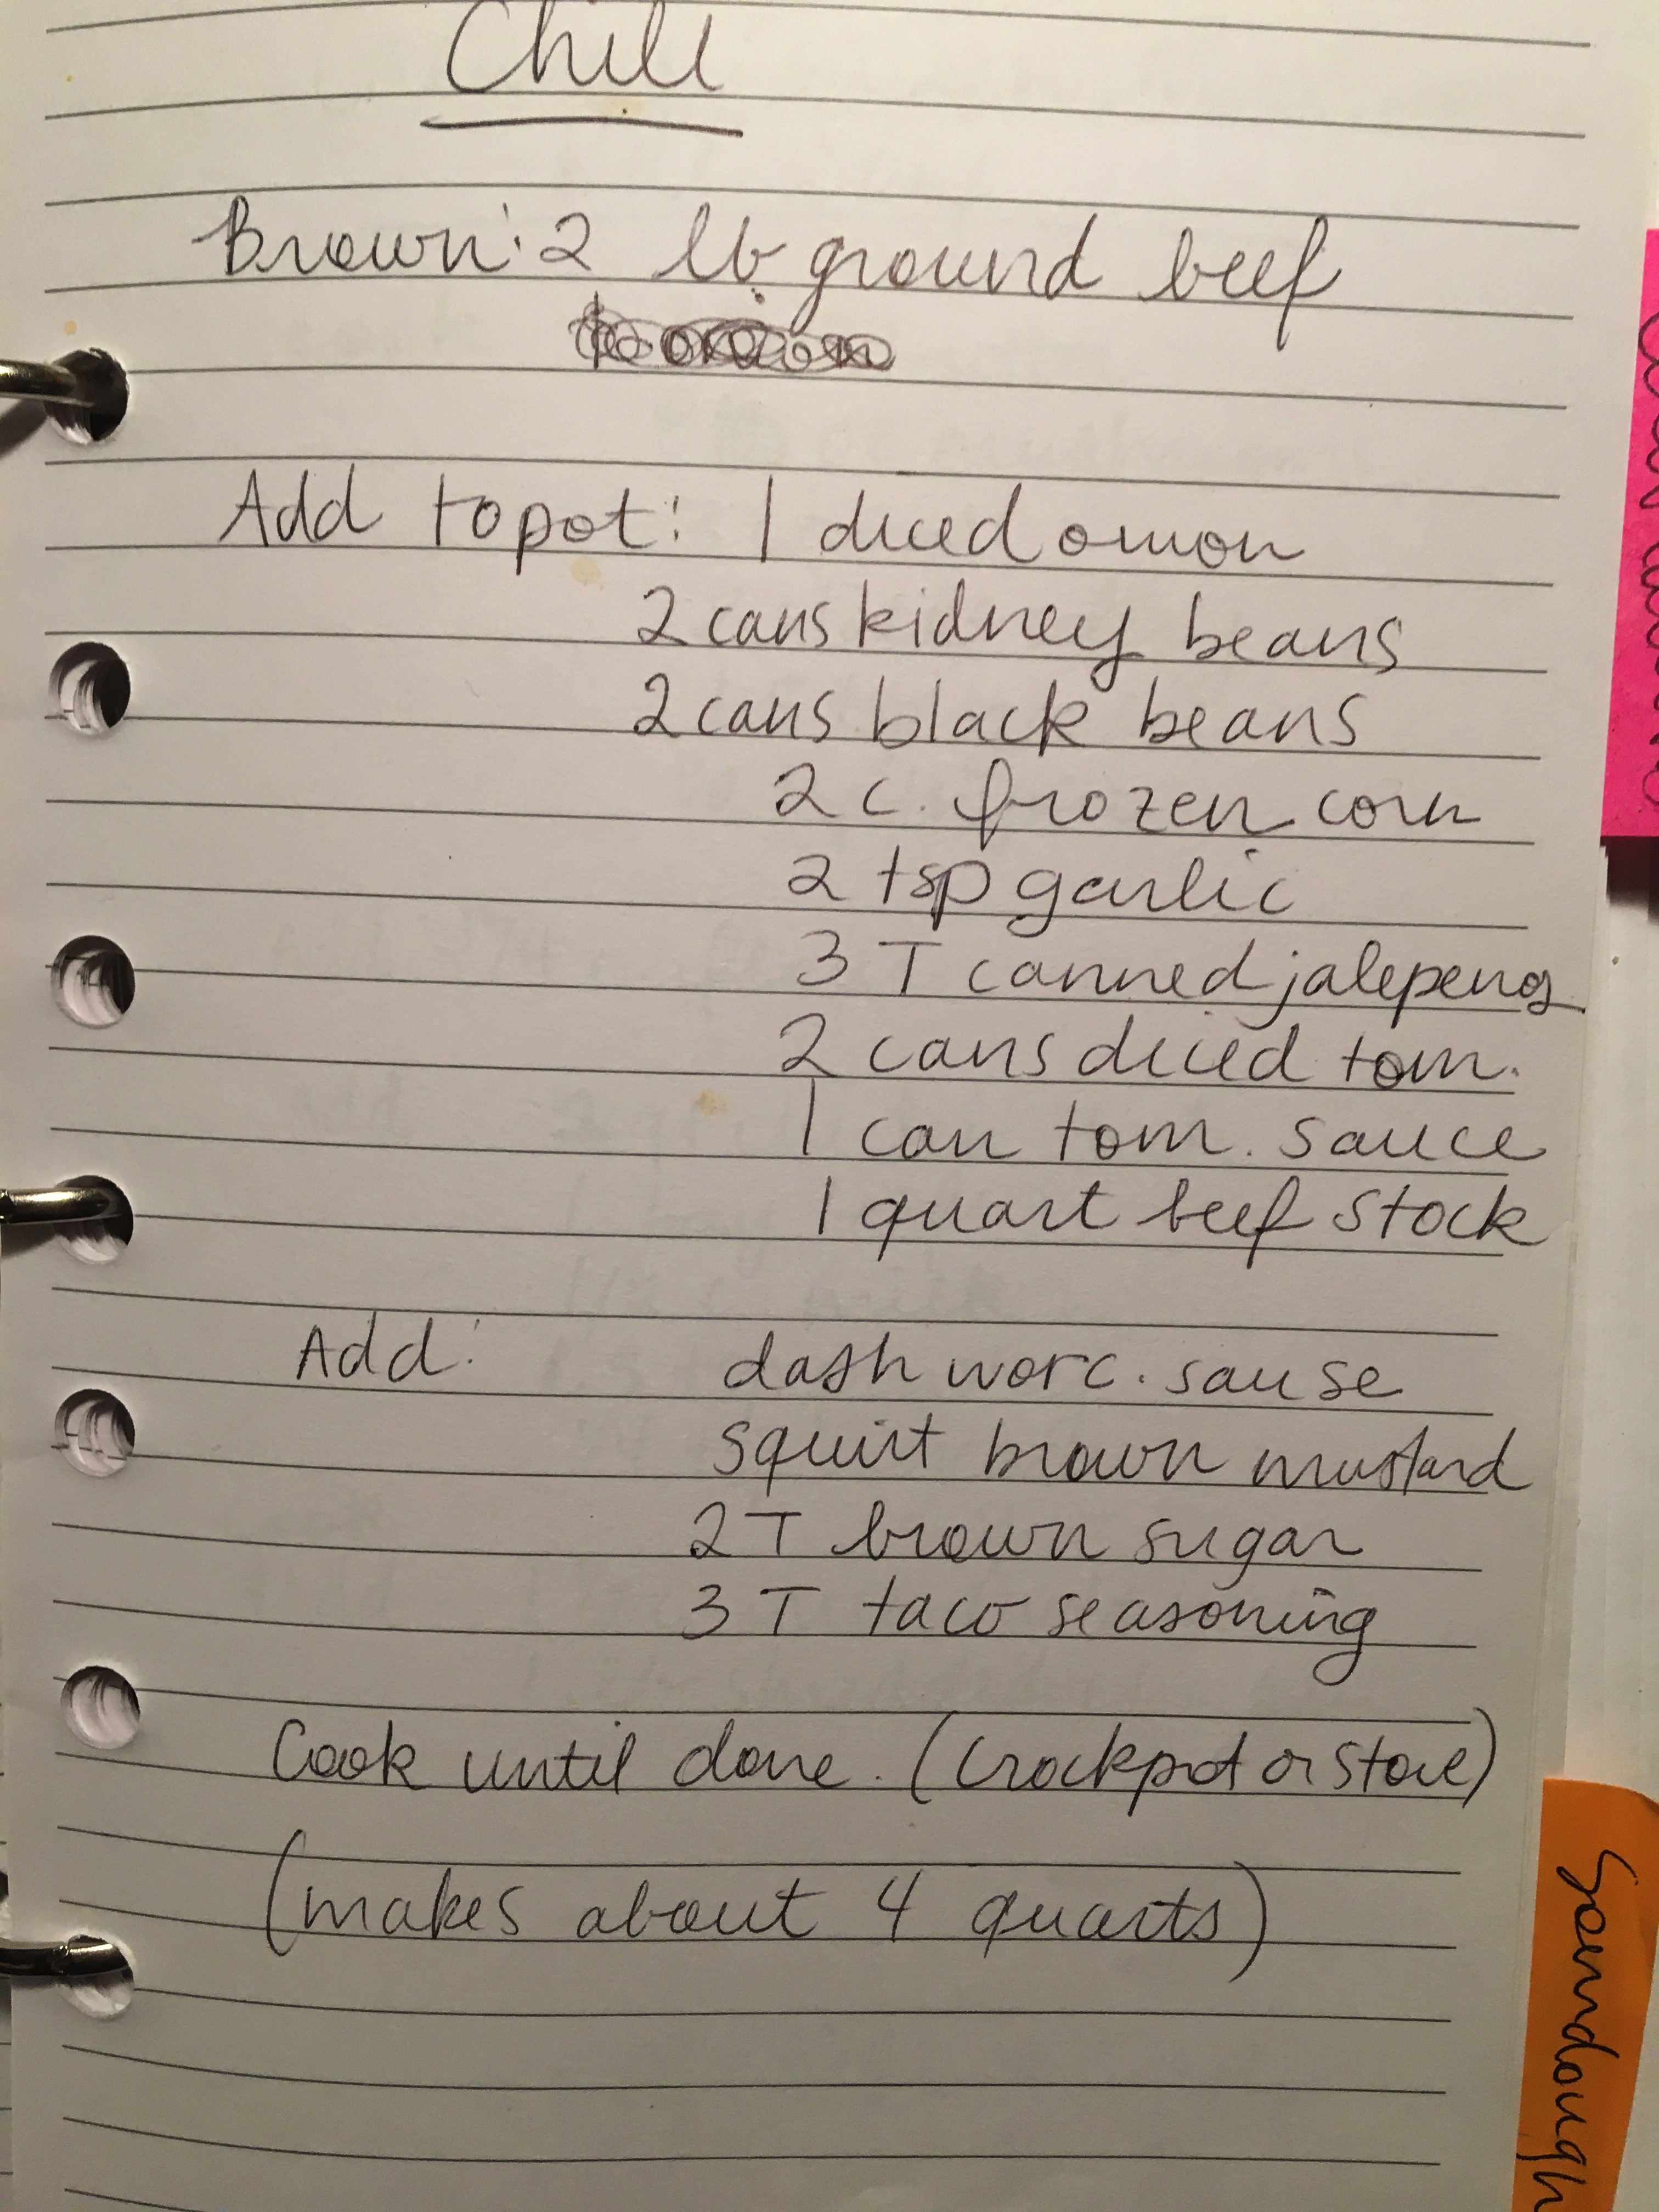 Chili
Brown: 2 lb. ground beef
Add to pot: 1 diced onion
2 cans kidney beans
2 cans black beans
2 c. frozen corn
2 tsp garlic
3 T canned jalepenos
2 cans diced tom.
1 can tom. sauce
1 quart beef stock
Add: dash worc. sause
squirt brown mustard
2 T brown sugar
3 T taco seasoning
Cook until done. (Crockpot or stove)
(makes about 4 quarts)
Sourdough